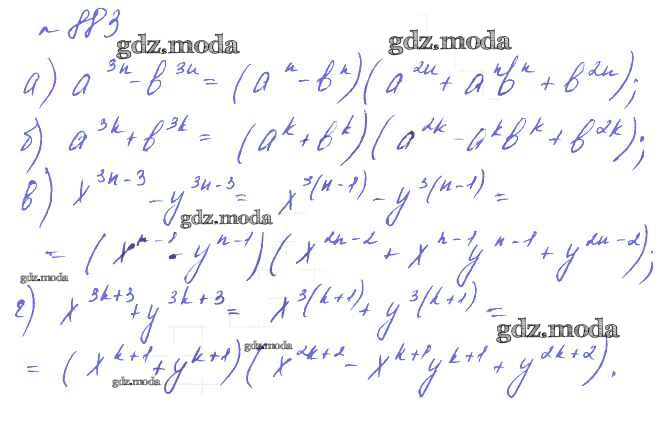 № 883
gdz.moda gdz.moda
а) a^{3n} - b^{3n} = (a^n - b^n)(a^{2n} + a^n b^n + b^{2n});
б) a^{3k} + b^{3k} = (a^k + b^k)(a^{2k} - a^k b^k + b^{2k});
в) x^{3n-3} - y^{3n-3} = x^{3(n-1)} - y^{3(n-1)} =
gdz.moda
= (x^{n-1} - y^{n-1})(x^{2n-2} + x^{n-1} y^{n-1} + y^{2n-2});
gdz.moda
г) x^{3k+3} + y^{3k+3} = x^{3(k+1)} + y^{3(k+1)} =
gdz.moda
gdz.moda
= (x^{k+1} + y^{k+1})(x^{2k+2} - x^{k+1} y^{k+1} + y^{2k+2}).
gdz.moda